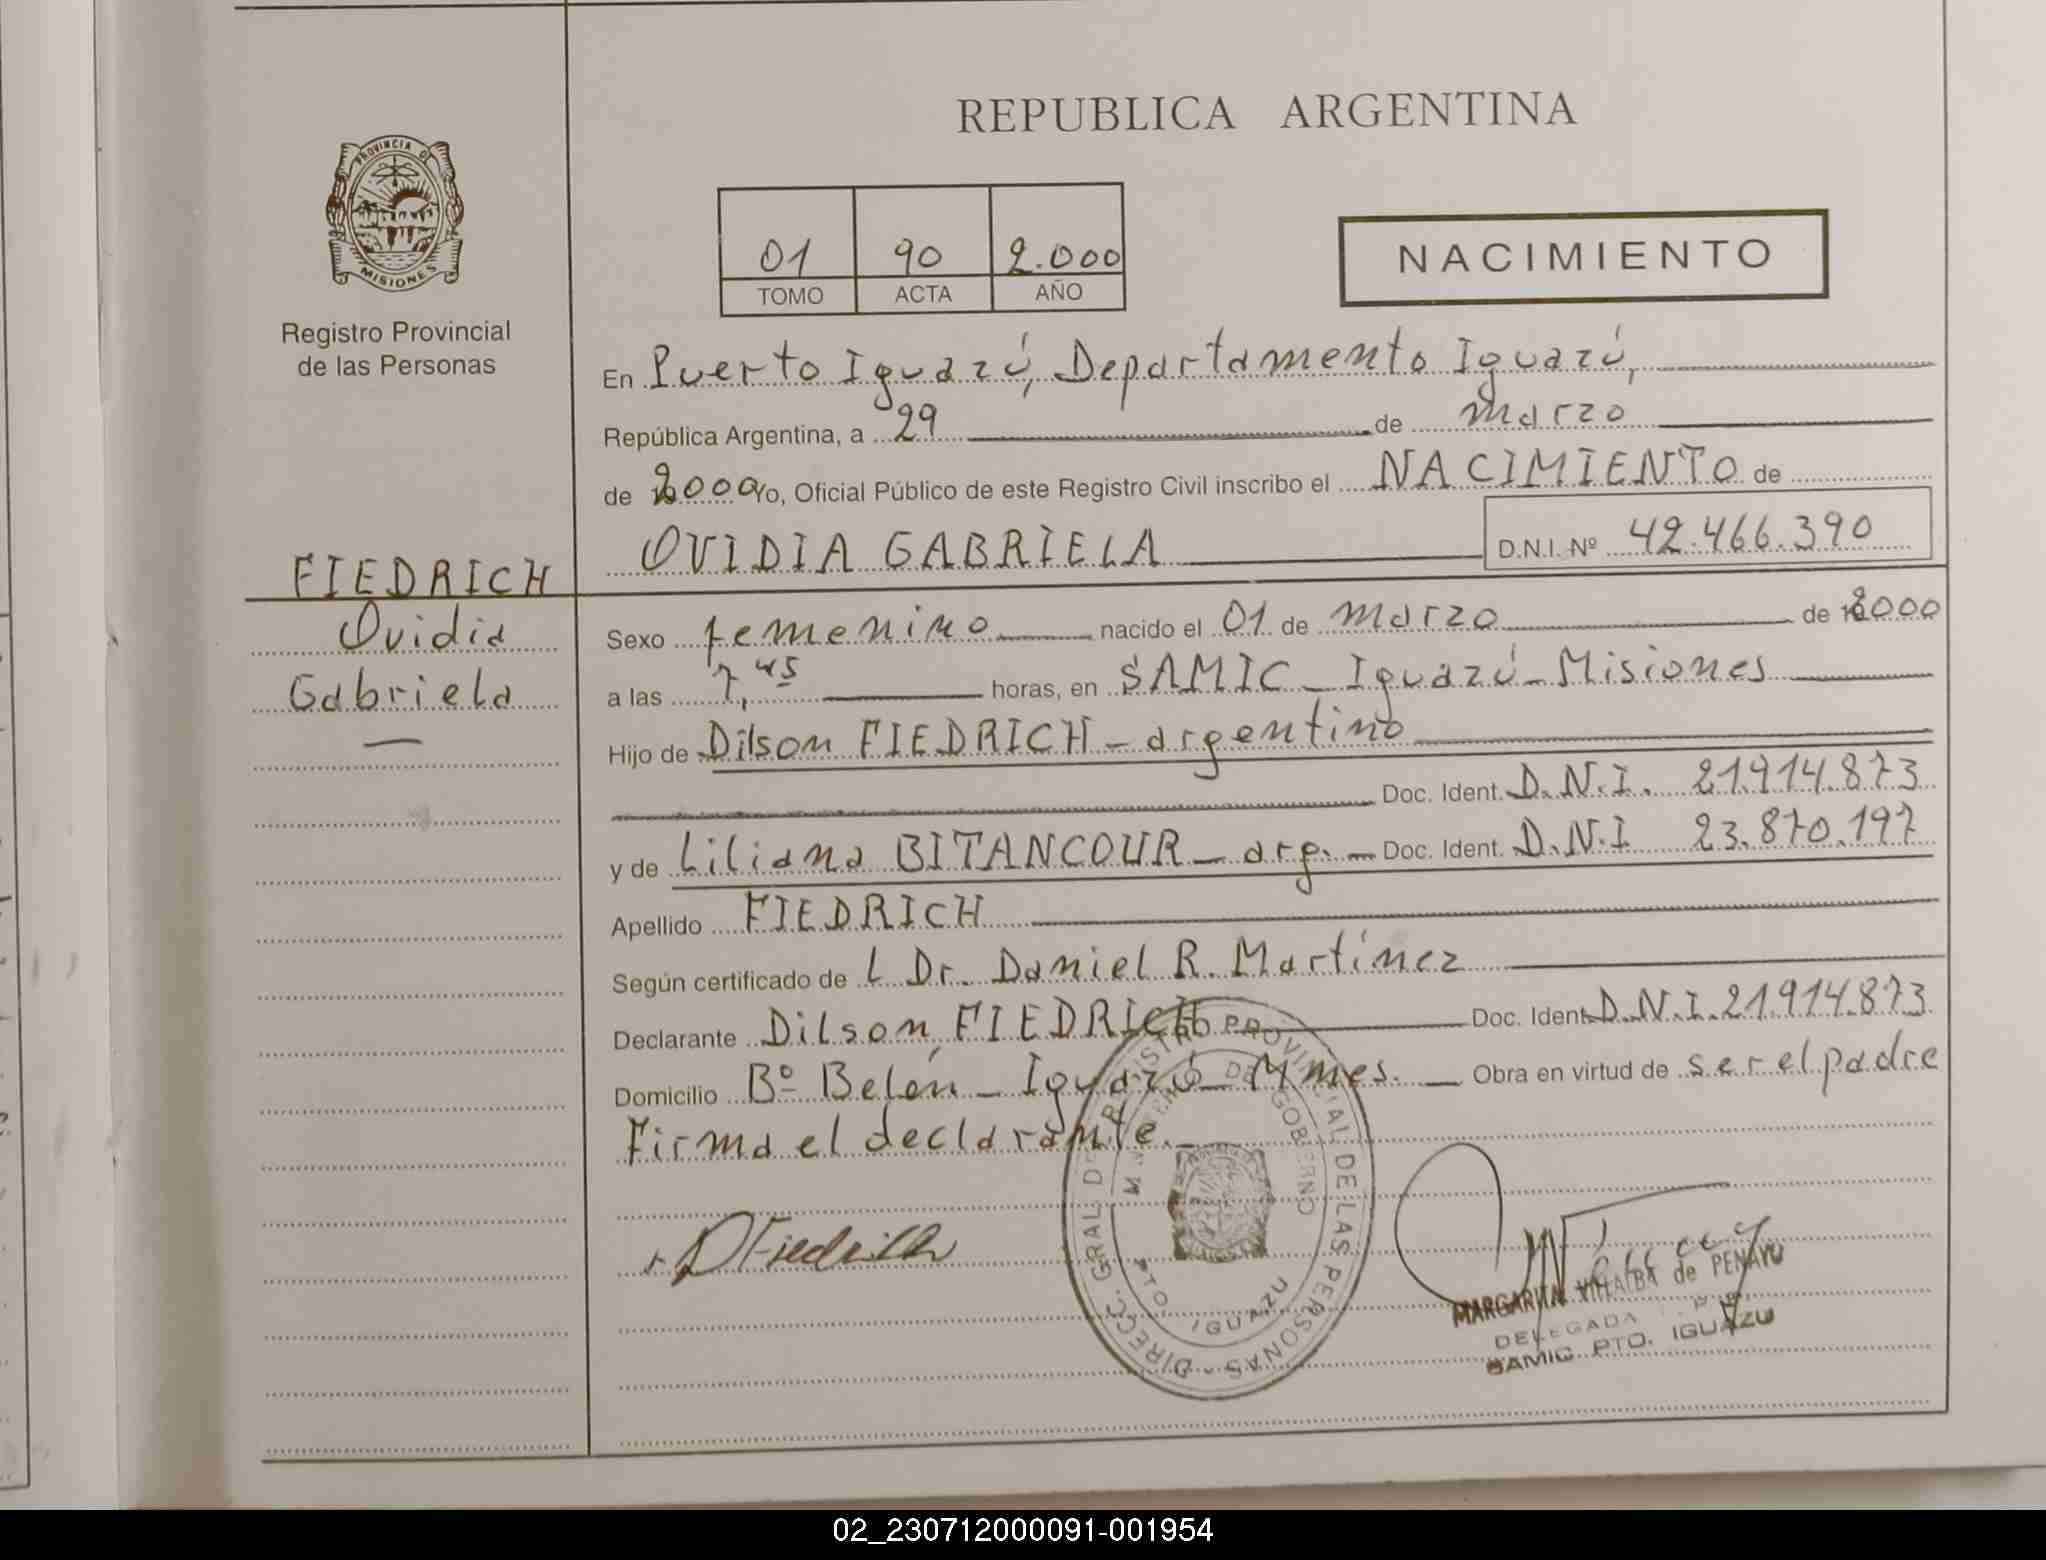 REPUBLICA ARGENTINA
PROVINCIA DE
MISIONES
Registro Provincial
de las Personas
01 90 2.000
TOMO ACTA AÑO
NACIMIENTO
En Puerto Iguazú, Departamento Iguazú,
República Argentina, a 29 de marzo
de 2000 Yo, Oficial Público de este Registro Civil inscribo el NACIMIENTO de
OVIDIA GABRIELA D.N.I. Nº 42.466.390
FIEDRICH
Ovidia
Gabriela
Sexo femenino nacido el 01 de marzo de 2000
a las 7,45 horas, en SAMIC - Iguazú - Misiones
Hijo de Dilson FIEDRICH - argentino
Doc. Ident. D.N.I. 21.914.873
y de Liliana BITANCOUR - arg. - Doc. Ident. D.N.I 23.870.197
Apellido FIEDRICH
Según certificado de L Dr. Daniel R. Martínez
Declarante Dilson FIEDRICH Doc. Ident. D.N.I. 21.914.873
Domicilio Bº Belén - Iguazú - Mnes. - Obra en virtud de ser el padre
Firma el declarante.
DFiedrich
DIRECC. GRAL. DE REGISTRO PROVINCIAL DE LAS PERSONAS
MINISTERIO DE GOBIERNO
PTO. IGUAZU
MARGARITA VILLALBA de PENAYO
DELEGADA
SAMIC PTO. IGUAZU
02_230712000091-001954